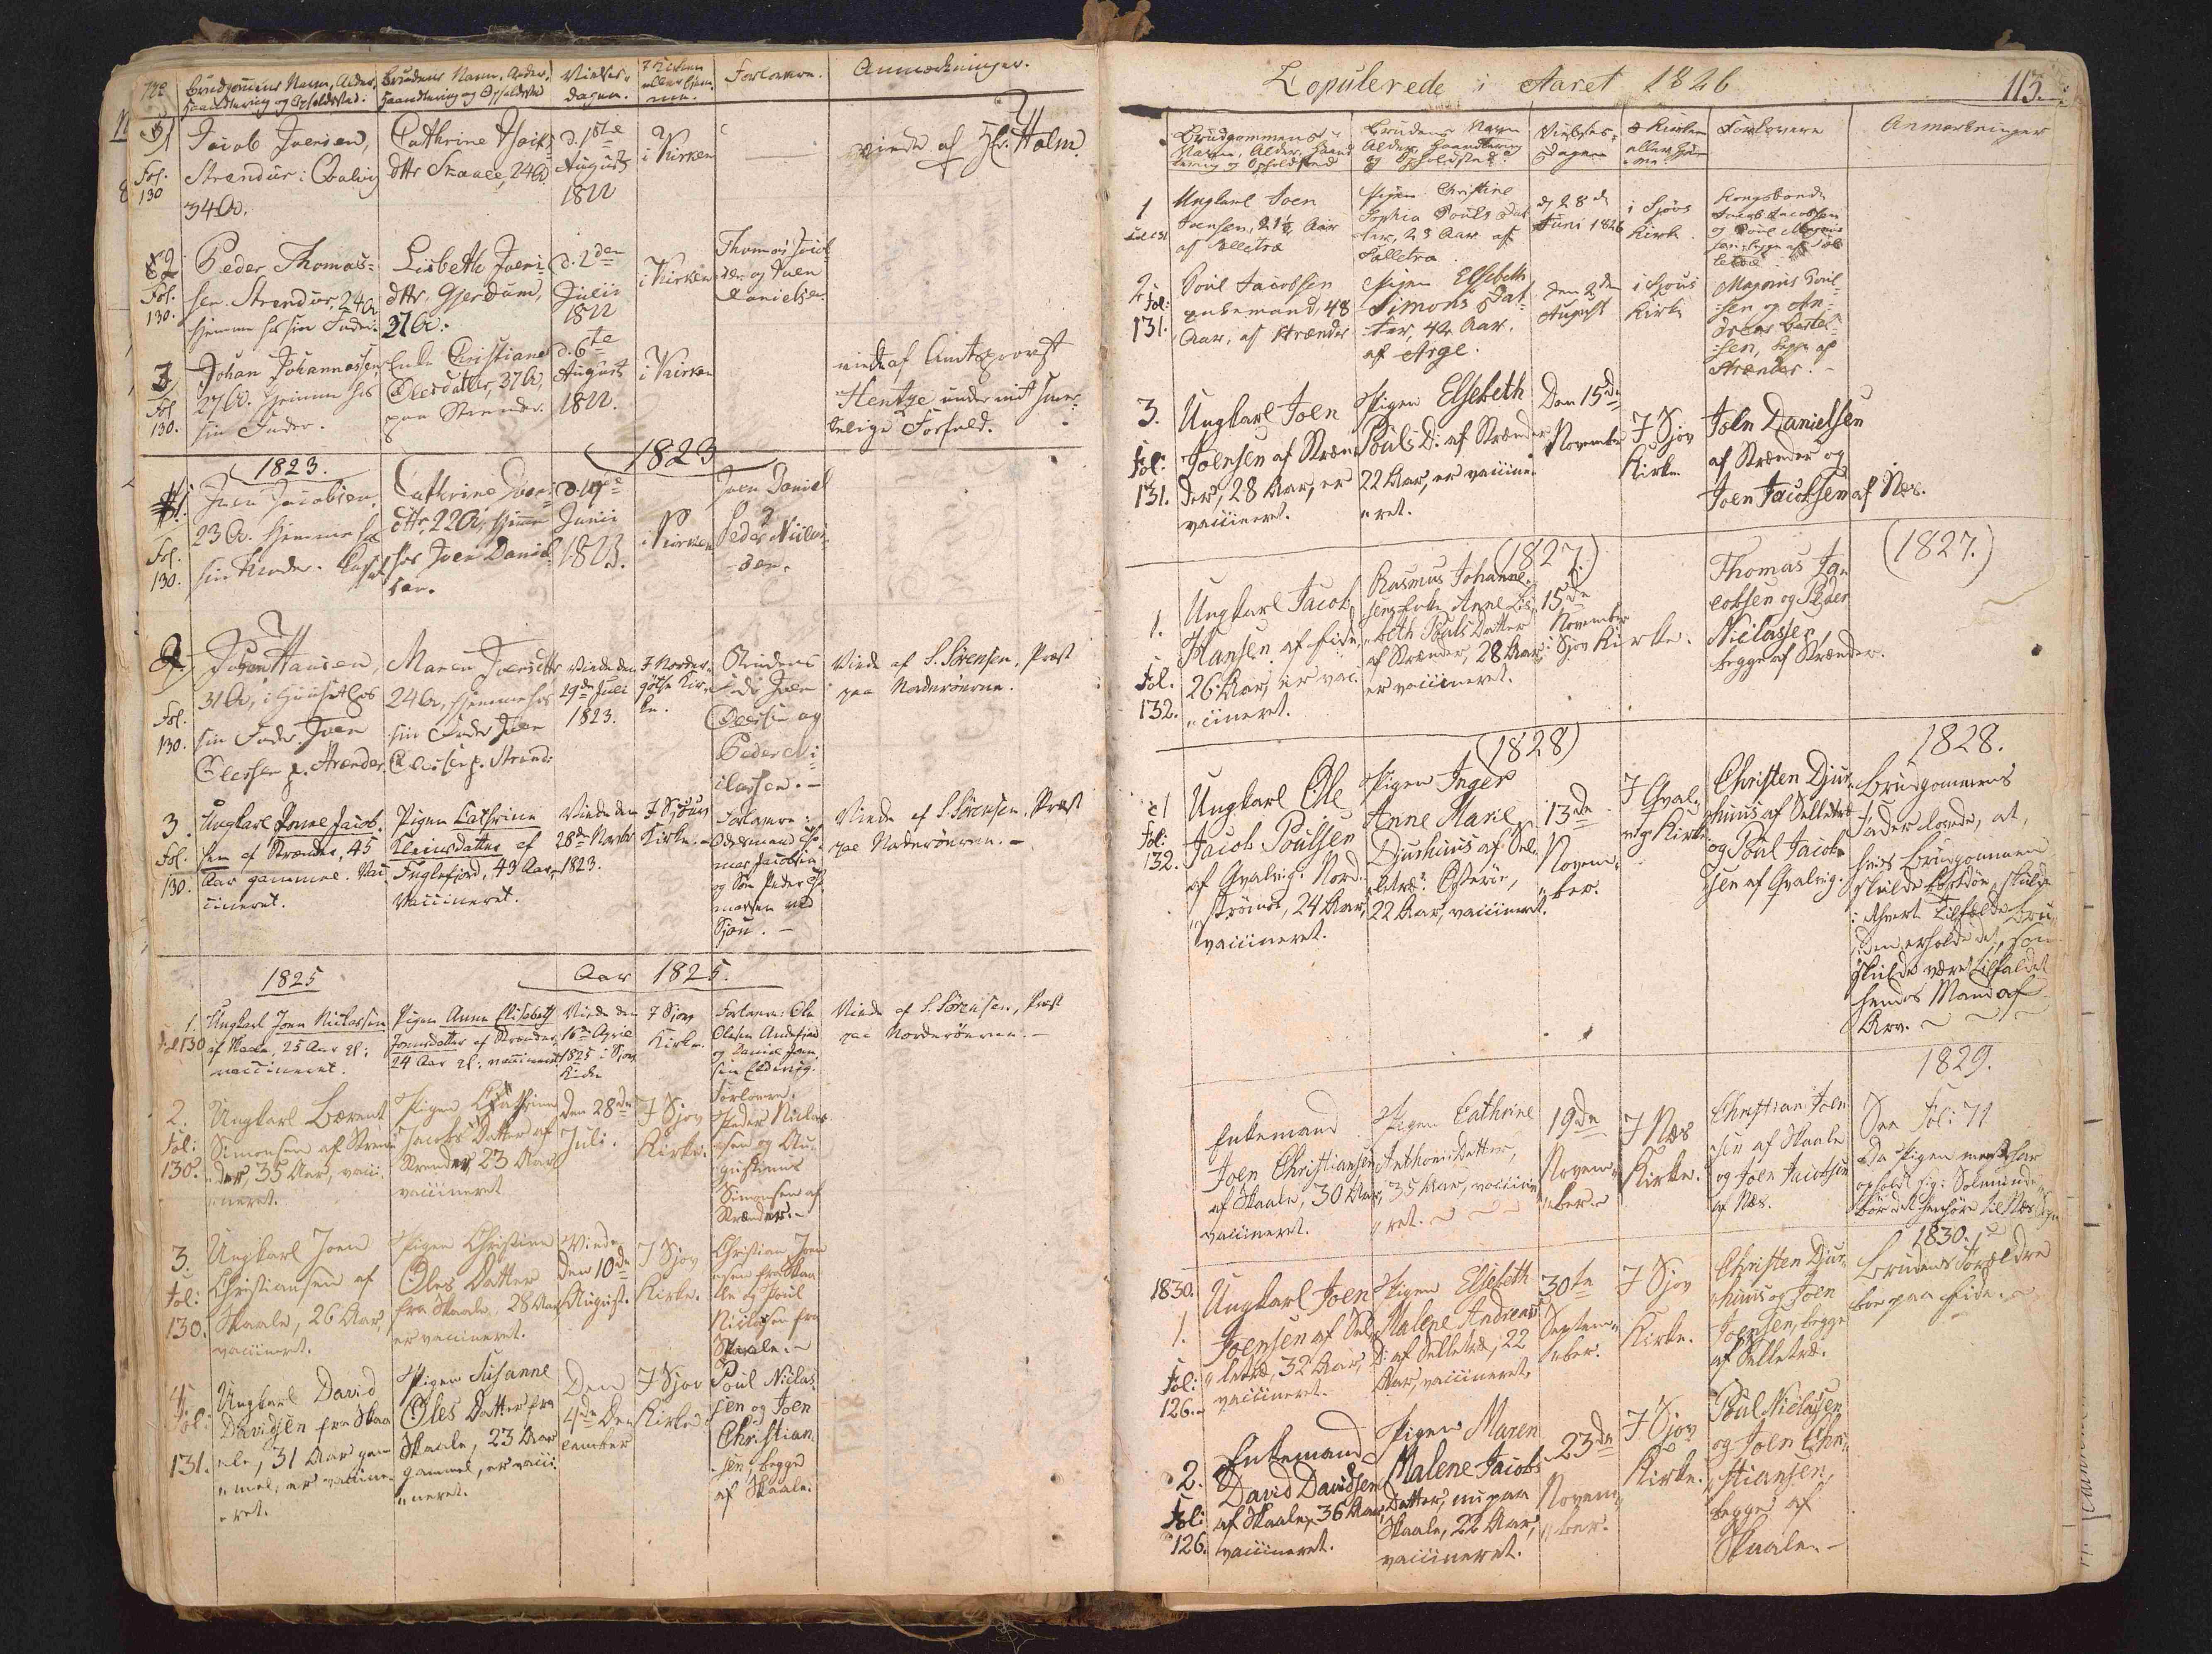 No
Brudgommens Navn, Alder,
Haandtering og Opholdsted.
Brudens Navn, Alder,
Haandtering og Opholdsted
Vielses-
dagen.
I Kirken
eller hjem-
me.
Forlovere.
Anmærkninger.
1
Fol:
130
Jacob Joensen,
Strendur i Qvalvig
34 A.
Cathrine
dttr Skaale, 24 A.
d. 1ste
August
1822
i Kirken
viede af Hr. Holm.
2
Fol.
130.
Peder Thomas-
sen. Strendur, 24 A
hjemme hos sin Fader.
Lisbeth Joens-
dttr, Gjerdum,
37 A.
d. 2den
Julii
1822
i Kirken
Thomas Jacob-
sen og Joen
Danielsen.
3
Fol
130.
Johan Johannessen
27 A. hjemme hos
sin Fader.
Enke Christiane
Olesdatter, 37 A,
paa Strender.
d. 6te
August
1822.
i Kirken
viede af Amtsprovst
Hentze under mit
Forfald.
1823.
1823
1.
Fol.
130.
Joen Jacobsen,
23 A. hjemme hos
sin Moder.
Cathrine Joens-
dttr, 22 A, hjemme
hos Joen Daniel-
sen.
Junii
1823.
i Kirken
Joen Daniel
Peder Niclas-
sen.
2
Fol.
130.
Johan Hansen,
31 A, i Huuset hos
sin Fader Joen
Olessen p. Strender.
Maren Joensdttr
24 A, hjemme hos
sin Fader Joen
Olessen p. Strend:
Viede den
29de Juli
1823.
I Norder-
göthe Kir-
ke.
Brudens
Fader Joen
Olessen og
Peder Ni-
classen.-
Viede af S. Sörensen, Præst
paa Norderöerne.
3.
Fol.
130.
Ungkarl Poul Jacob-
sen af Strender, 45
Aar gammel. Vac-
cineret.
Pigen Cathrine
Clemensdatter af
Fuglefjord, 43 Aar,
Vaccineret.
Viede den
28de Novbr
1823.
I Sjous
Kirke.-
Forlovere:
Oldermand Tho-
mas Jacobsen
og Søn Peder Tho-
massen ved
Sjou.-
Viede af S. Sörensen, Præst
paa Norderöerne.-
1825
Aar 1825.
1.
Fol 130
Ungkarl Joen Niclassen
af Skaale, 25 Aar gl:
vaccineret.
Pigen Anna Elisabeth
Joensdatter af Strender,
24 Aar gl: vaccineret
Viede den
16de April
1825 i Sjov
Kirke
I Sjov
Kirke.
Forlovere: Ole
Olesen Andefjord
og Daniel Joen-
sen Eldevig.
Viede af S. Sörensen, Præst
paa Norderöerne.-
2.
Fol:
130.
Ungkarl Bærent
Simonsen af Stren-
der, 35 Aar, vacci-
neret.
Pigen Cathrine
Jacobs Datter af
Strender, 23 Aar
vaccineret
Den 28de
Juli.
I Sjov
Kirke.
Forlovere:
Peder Niclas-
sen og Au-
gustinus
Simonsen af
Strænder.-
3.
Fol:
130.
Ungkarl Joen
Christiansen af
Skaale, 26 Aar,
vaccineret.
Pigen Christine
Oles Datter
fra Skaale, 28 Aar
er vaccineret.
Viede
den 10de
August.
I Sjov
Kirke.
Christian Joen-
sen fra Skaa
le og Poul
Niclasen fra
Skaale.-
4
Fol:
131.
Ungkarl David
Davidsen fra Skaa
ale, 31 Aar gam
mel, er vaccine
ret.
Pigen Susanne
Oles Datter fra
Skaale, 23 Aar
gammel, er vacci
neret.
Den
4de De-
cember
I Sjov
Kirke.
Poul Niclas-
sen og Joen
Christian-
sen, begge
af Skaale.
Kopulerede i Aaret 1826
113.
Brudgommens
Navn, Alder, Haand
tering og Opholdsted
Brudens Navn
Alder, Haandtering
og Opholdsted.
Vielses-
dagen
I Kirken
eller hjem-
me.
Forlovere
Anmerkninger
1
Fol 131
Ungkarl Joen
Joensen, 21½ Aar
af Selletræ
Pigen Christine
Sophia Pouls Dat
ter, 23 Aar af
Selletræ
d 28de
Juni 1826
i Sjovs
Kirke
Kongsbonde
Jacob Jacobsen
og Poul Magnus
sen, begge af Sel
letræ
2
Fol:
131.
Poul Jacobsen
Enkemand, 48
Aar, af Strænder
Pigen Elsebeth
Simons Dat-
ter, 42 Aar.
af Arge.
den 2den
August
i Sjous
Kirke
Magnus Poul-
sen og An-
dreas Bertel-
sen, begge af
Strænder.-
3.
Fol:
131.
Ungkarl Joen
Joensen af Stræn-
der, 28 Aar, er
vaccineret.
Pigen Elsebeth
Pouls D: af Strænder
22 Aar, er vaccine-
ret.
Den 15de
November
I Sjov
Kirke
Joen Danielsen
af Strænder og
Joen Jacobsen af Næs.
(1827.)
(1827.)
1.
Fol.
132.
Ungkarl Jacob
Hansen af Eide,
26 Aar, er vac-
cineret.
Rasmus Johanne-
sens Enke Anne Lis-
beth Pouls Datter
af Strænder, 28 Aar,
er vaccineret.
15de
November
i Sjov Kirke.
Thomas Ja-
cobsen og Peder
Niclassen,
begge af Strænder.
(1828)
1828.
1
Fol:
132.
Ungkarl Ole
Jacob Poulsen
af Qvalvig. Nord-
strömöe, 24 Aar,
vaccineret.
Pigen Inger
Anne Marie
Djurhuus af Sel-
letræ. Österöe,
22 Aar, vaccineret.
13de
Novem-
ber.
I Qval-
vigs Kirke
Christen Djur-
huus af Selletræ
og Poul Jacob-
sen af Qvalvig.
Brudgommens
Fader lovede, at,
hvis Brudgommen
skulde bortdöe, skulde
i ethvert Tilfælde Bru-
den erholde det, som
skulde været tilfaldet
hendes Mand af
Arv.
1829.
Enkemand
Joen Christiansen
af Skaale, 30 Aar,
vaccineret.
Pigen Cathrine
Anthonis Datter,
35 Aar, vaccine
ret.
19de
Novem-
ber.
I Næs
Kirke.
Christian Joen-
sen af Skaale
og Joen Jacobsen
af Næs.
See Fol: 71
Da Pigen meest har
opholdt sig i Solmunde,
bör det henhöre til Næs Sogn
1830.
1830.
1.
Fol:
126.
Ungkarl Joen
Joensen af Sel-
letræ, 32 Aar,
vaccineret.
Pigen Elsebeth
Malene Andreas
D: af Selletræ, 22
Aar, vaccineret.
30te
Septem-
ber.
I Sjov
Kirke.
Christen Djur-
huus og Joen
Joensen, begge
af Selletræ.
Brudens Forældre
boe paa Eide.
2.
Fol:
126.
Enkemand
David Davidsen
af Skaale, 36 Aar,
vaccineret.
Pigen Maren
Malene Jacobs
Datter, nu paa
Skaale, 22 Aar,
vaccineret.
23de
Novem-
ber.
I Sjov
Kirke.
Poul Niclasen
og Joen Chri-
stiansen,
begge af
Skaale.-